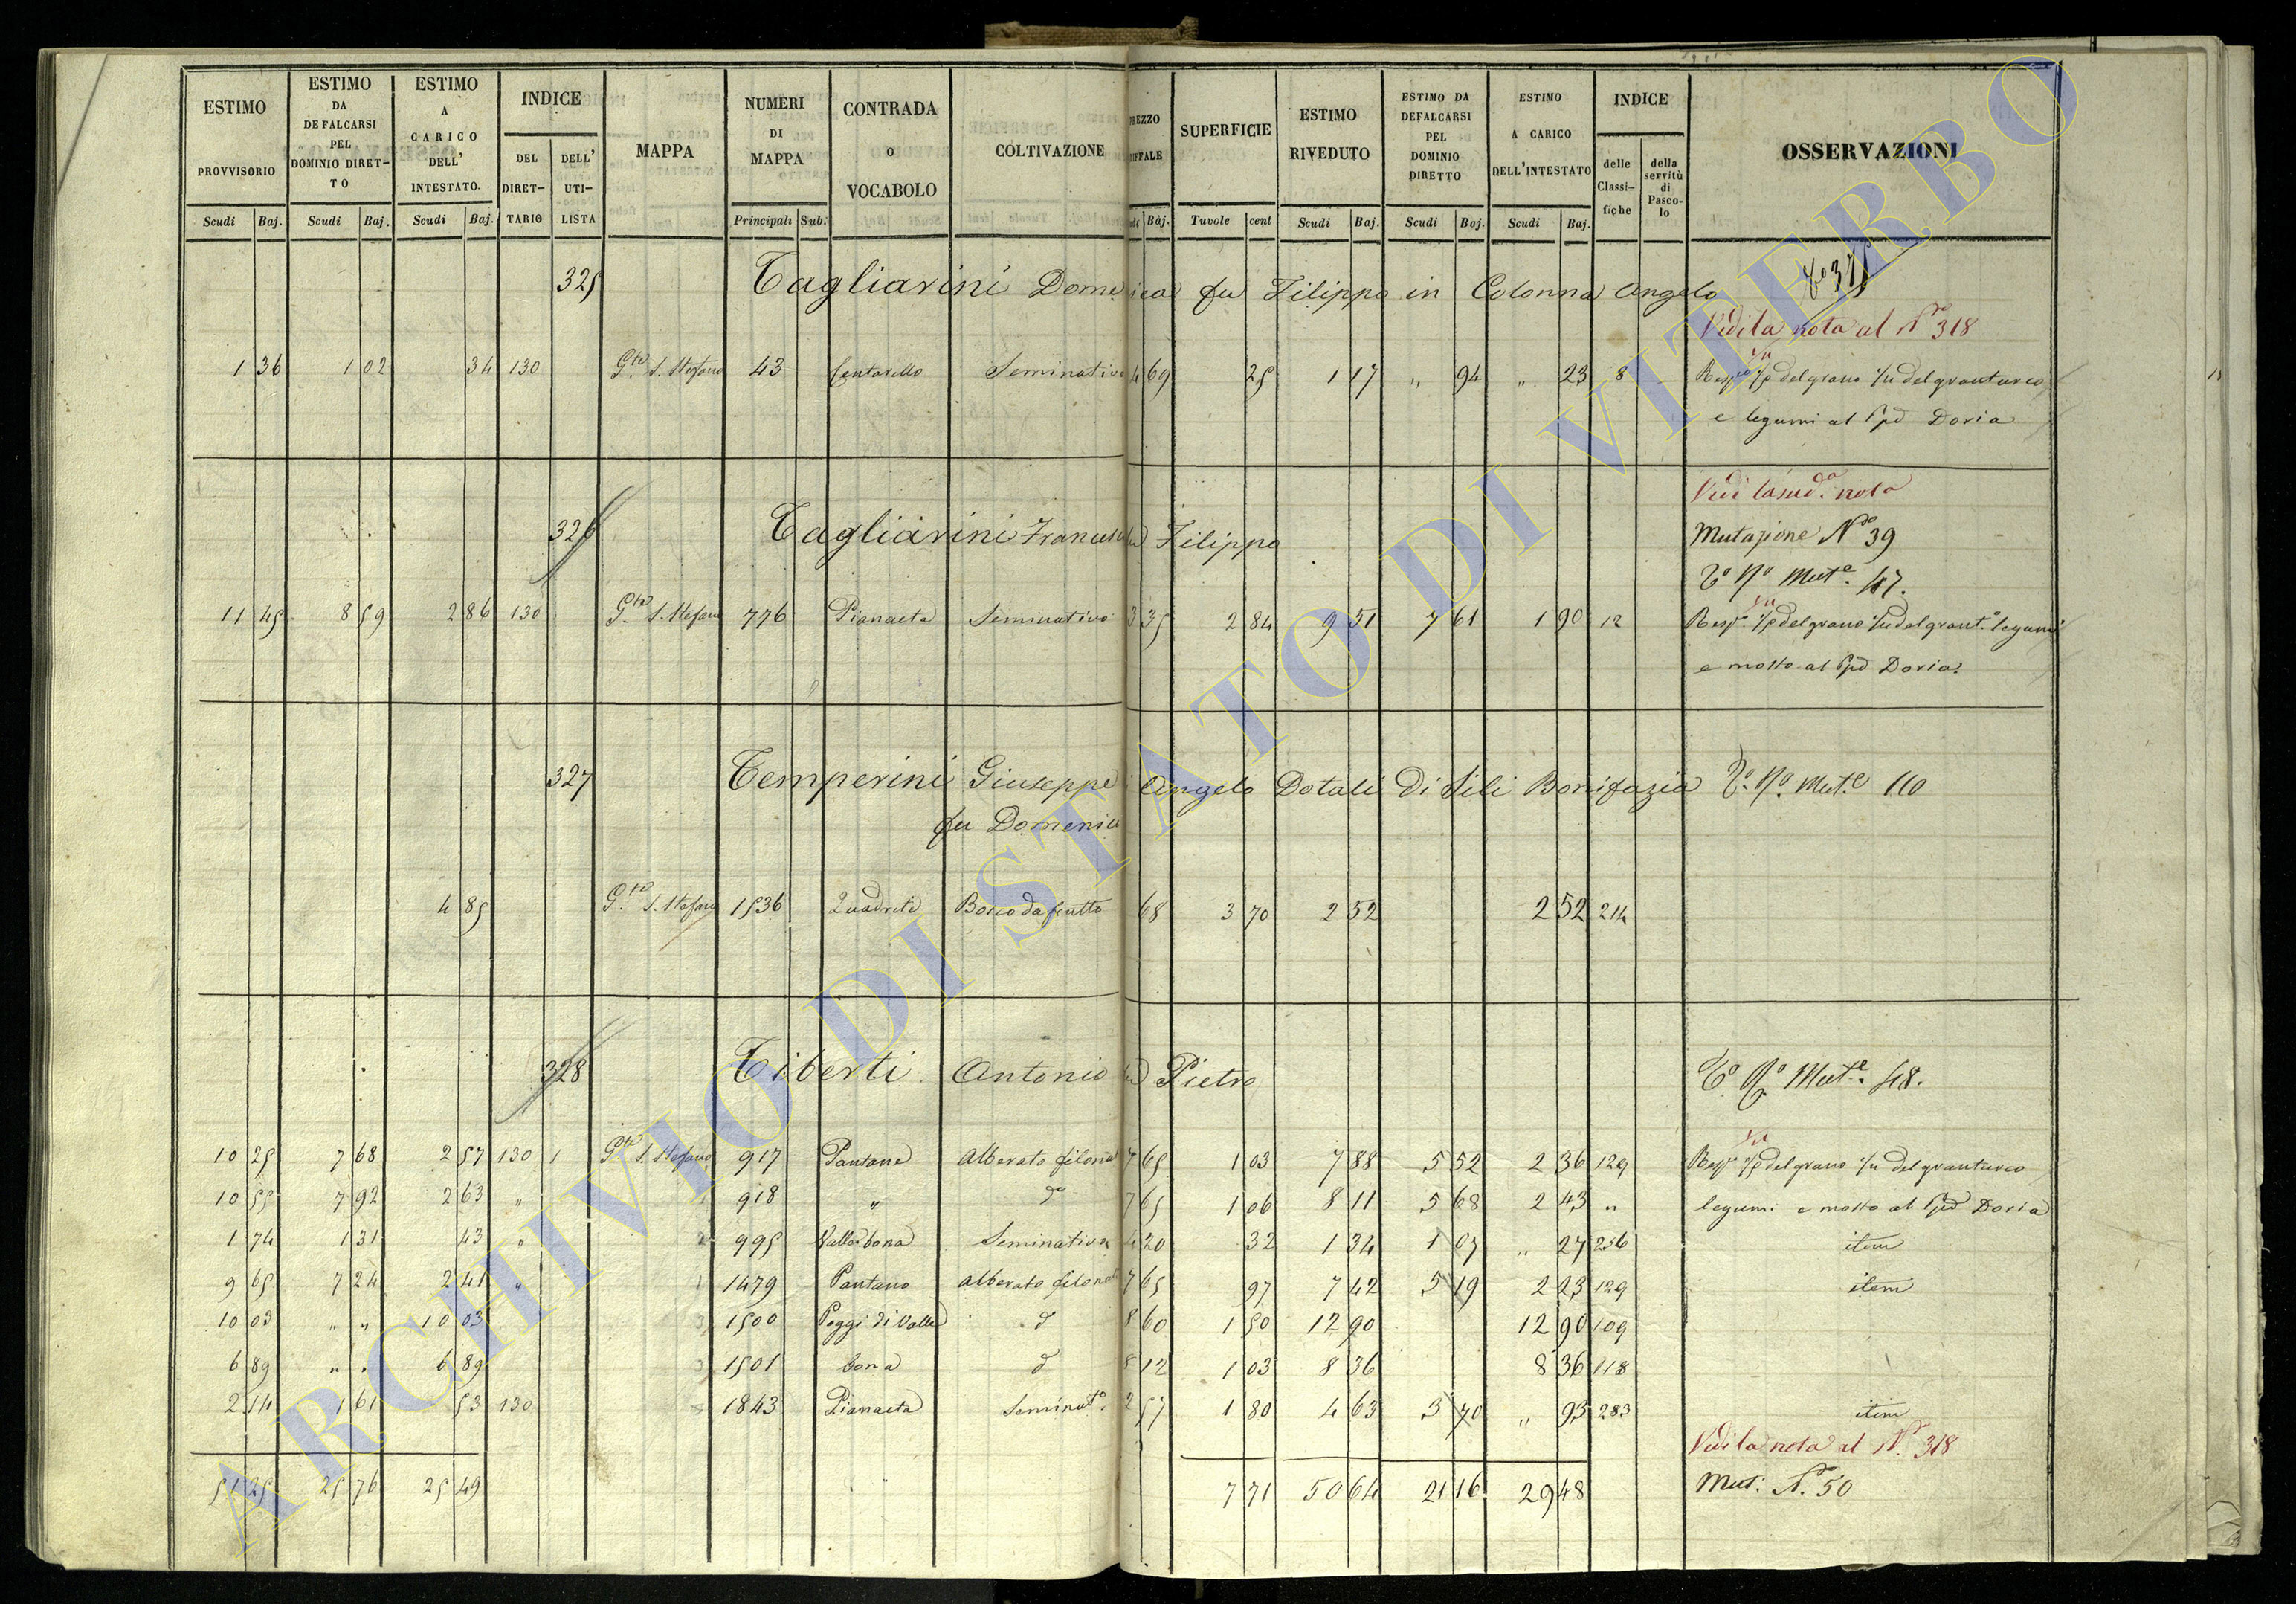 ESTIMO PROVVISORIO Scudi Baj.
ESTIMO DA DEFALCARSI PEL DOMINIO DIRET-TO Scudi Baj.
ESTIMO A CARICO DELL' INTESTATO. Scudi Baj.
INDICE DEL DIRET-TARIO DELL' UTI-LISTA
MAPPA
NUMERI DI MAPPA Principali Sub.
CONTRADA O VOCABOLO
COLTIVAZIONE
Baj.
SUPERFICIE Tavole cent
ESTIMO RIVEDUTO Scudi Baj.
ESTIMO DA DEFALCARSI PEL DOMINIO DIRETTO Scudi Baj.
ESTIMO A CARICO DELL'INTESTATO Scudi Baj.
INDICE delle Classi-fiche della servitù di Pasco-lo
OSSERVAZIONI
325 Tagliarini Domenica fu Filippo in Colonna Angelo
Vedi la nota al N.ro 318
1 36 1 02 34 130 G.te S. Stefano 43 Centarello Seminativo 4 69 25 1 17 " 94 " 23 8 del grano del granturco
e legumi al Ppe Doria
Vedi la sud.a nota
326 Tagliarini Francesco fu Filippo Mutazione N.ro 39
T.o N.o Mut.e 47.
11 45 8 59 2 86 130 G.te S. Stefano 776 Pianaeta Seminativo 3 35 2 84 9 51 7 61 1 90 12 del grano del grant.o legumi
e mosto al Ppe Doria
327 Temperini Giuseppe Angelo Dotali di Sili Bonifazia T.o N.o Mut.e 110
fu Domenico
4 85 G.te S. Stefano 1536 Quadrete Bosco da frutto 68 3 70 2 52 2 52 214
328 Tiberti Antonio fu Pietro T.o N.o Mut.e 48.
10 25 7 68 2 57 130 1 G.te S. Stefano 917 Pantane Alberato filonato 7 65 1 03 7 88 5 52 2 36 129 del grano del granturco
10 55 7 92 2 63 " 918 " d.o 7 65 1 06 8 11 5 68 2 43 " legumi e mosto al Ppe Doria
1 74 1 31 43 " 2 995 Valle bona Seminativo 4 20 32 1 34 1 07 " 27 256 item
9 65 7 24 2 41 " 1 1479 Pantano Alberato filonato 7 65 97 7 42 5 19 2 23 129 item
10 03 " " 10 03 3 1500 Poggi di Valle d 8 60 1 50 12 90 12 90 109
6 89 " " 6 89 3 1501 bona d 8 12 1 03 8 36 8 36 118
2 14 1 61 53 130 1843 Pianaeta Seminat.o 2 57 1 80 4 63 3 70 " 93 283 item
Vedi la nota al N.o 318
51 25 25 76 25 49 7 71 50 64 21 16 29 48 Mut: N.o 50
ARCHIVIO DI STATO DI VITERBO